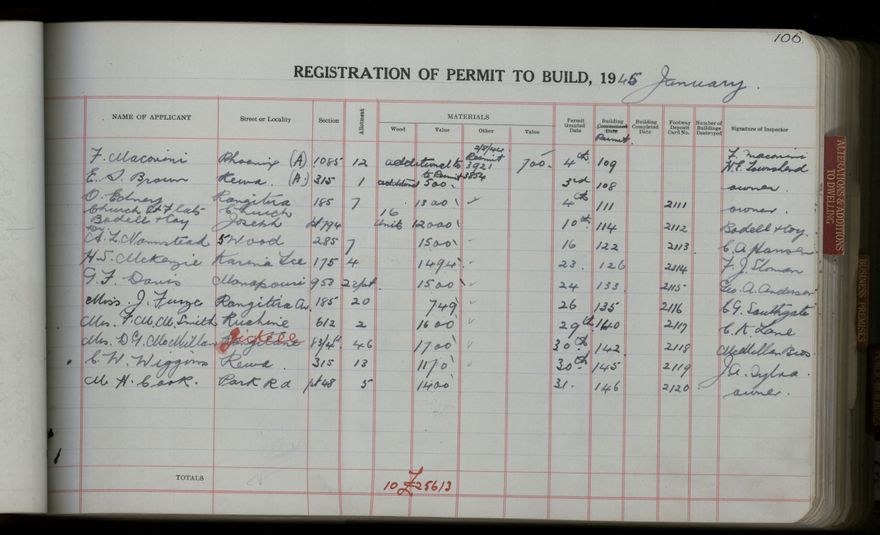 106
REGISTRATION OF PERMIT TO BUILD, 1945 January.
NAME OF APPLICANT Street or Locality Section Allotment MATERIALS Permit Granted Date Building Commenced Date Permit. Building Completed Date Footway Deposit Card No. Number of Buildings Destroyed Signature of Inspector
Wood Value Other Value
F. Macorini Phoenix (A) 1085 12 additional to Permit 3921 700. 4th 109 F. Macorini
H. E. Townshend
E. S. Brown Rewa. (A) 315 1 additional to Permit 3854 500. 3rd 108 owner.
Rangitira 185 7 1300 4th 111 2111 owner.
Church St Flats Church 16
Bodell & Coy Joseph pt 794 Units 12000 10th 114 2112 Bodell & Coy.
Wood 285 7 1500 16 122 2113 C. A. Hansen
H. S. McKenzie 175 4 1494 23. 126 2114 F. J. Sloman
G. F. Davis Manapouri 953 22 pt 1500 24 133 2115 Geo. A. Anderson
Miss. J. Rangitira Av. 185 20 749 26 135 2116 C. G. Southgate
Mrs. F. M. M. Smith Ruahine 612 2 1600 29th 140 2117 C. K. Lane
Mrs. D. G. McMillan 46 1700 30th 142 2118 McMillan Bros
C. W. Wiggins Rewa. 315 13 1170 30th 145 2119
M. H. Cook. Park Rd pt 48 5 1400 31. 146 2120 owner.
TOTALS 10 £25613
ALTERATIONS & ADDITIONS TO DWELLING
BUSINESS PREMISES